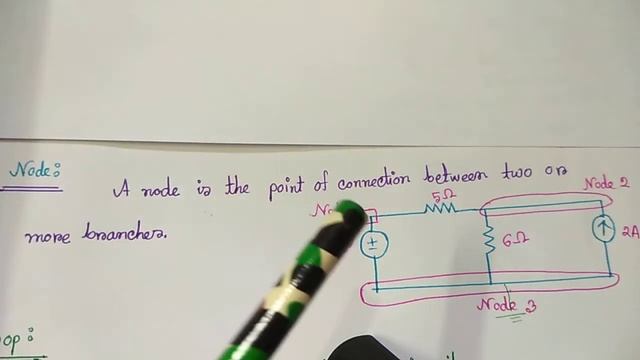 Node:
A node is the point of connection between two or
more branches.
5Ω
Node 2
6Ω
2A
Node 3